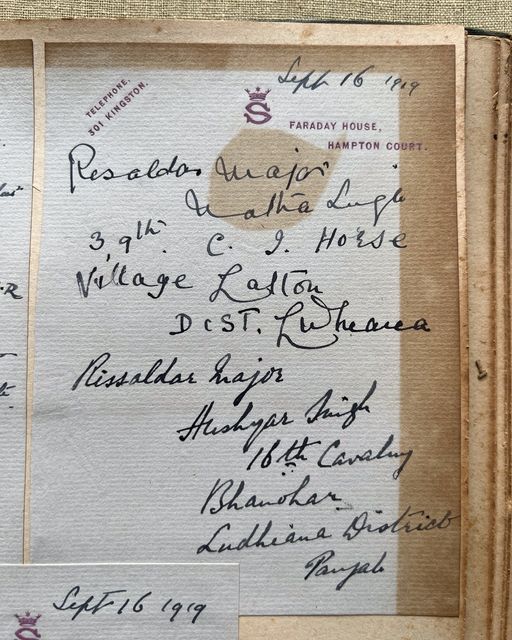 Sept 16 1919
TELEPHONE,
301 KINGSTON.
S
FARADAY HOUSE,
HAMPTON COURT.
Resaldar Major
Natha Singh
39th C. I. Horse
Village Lalton
DIST.
Rissaldar Major
Hushyar Singh
16th Cavalry
Bhanohar
Ludhiana District
Panjab
Sept 16 1919